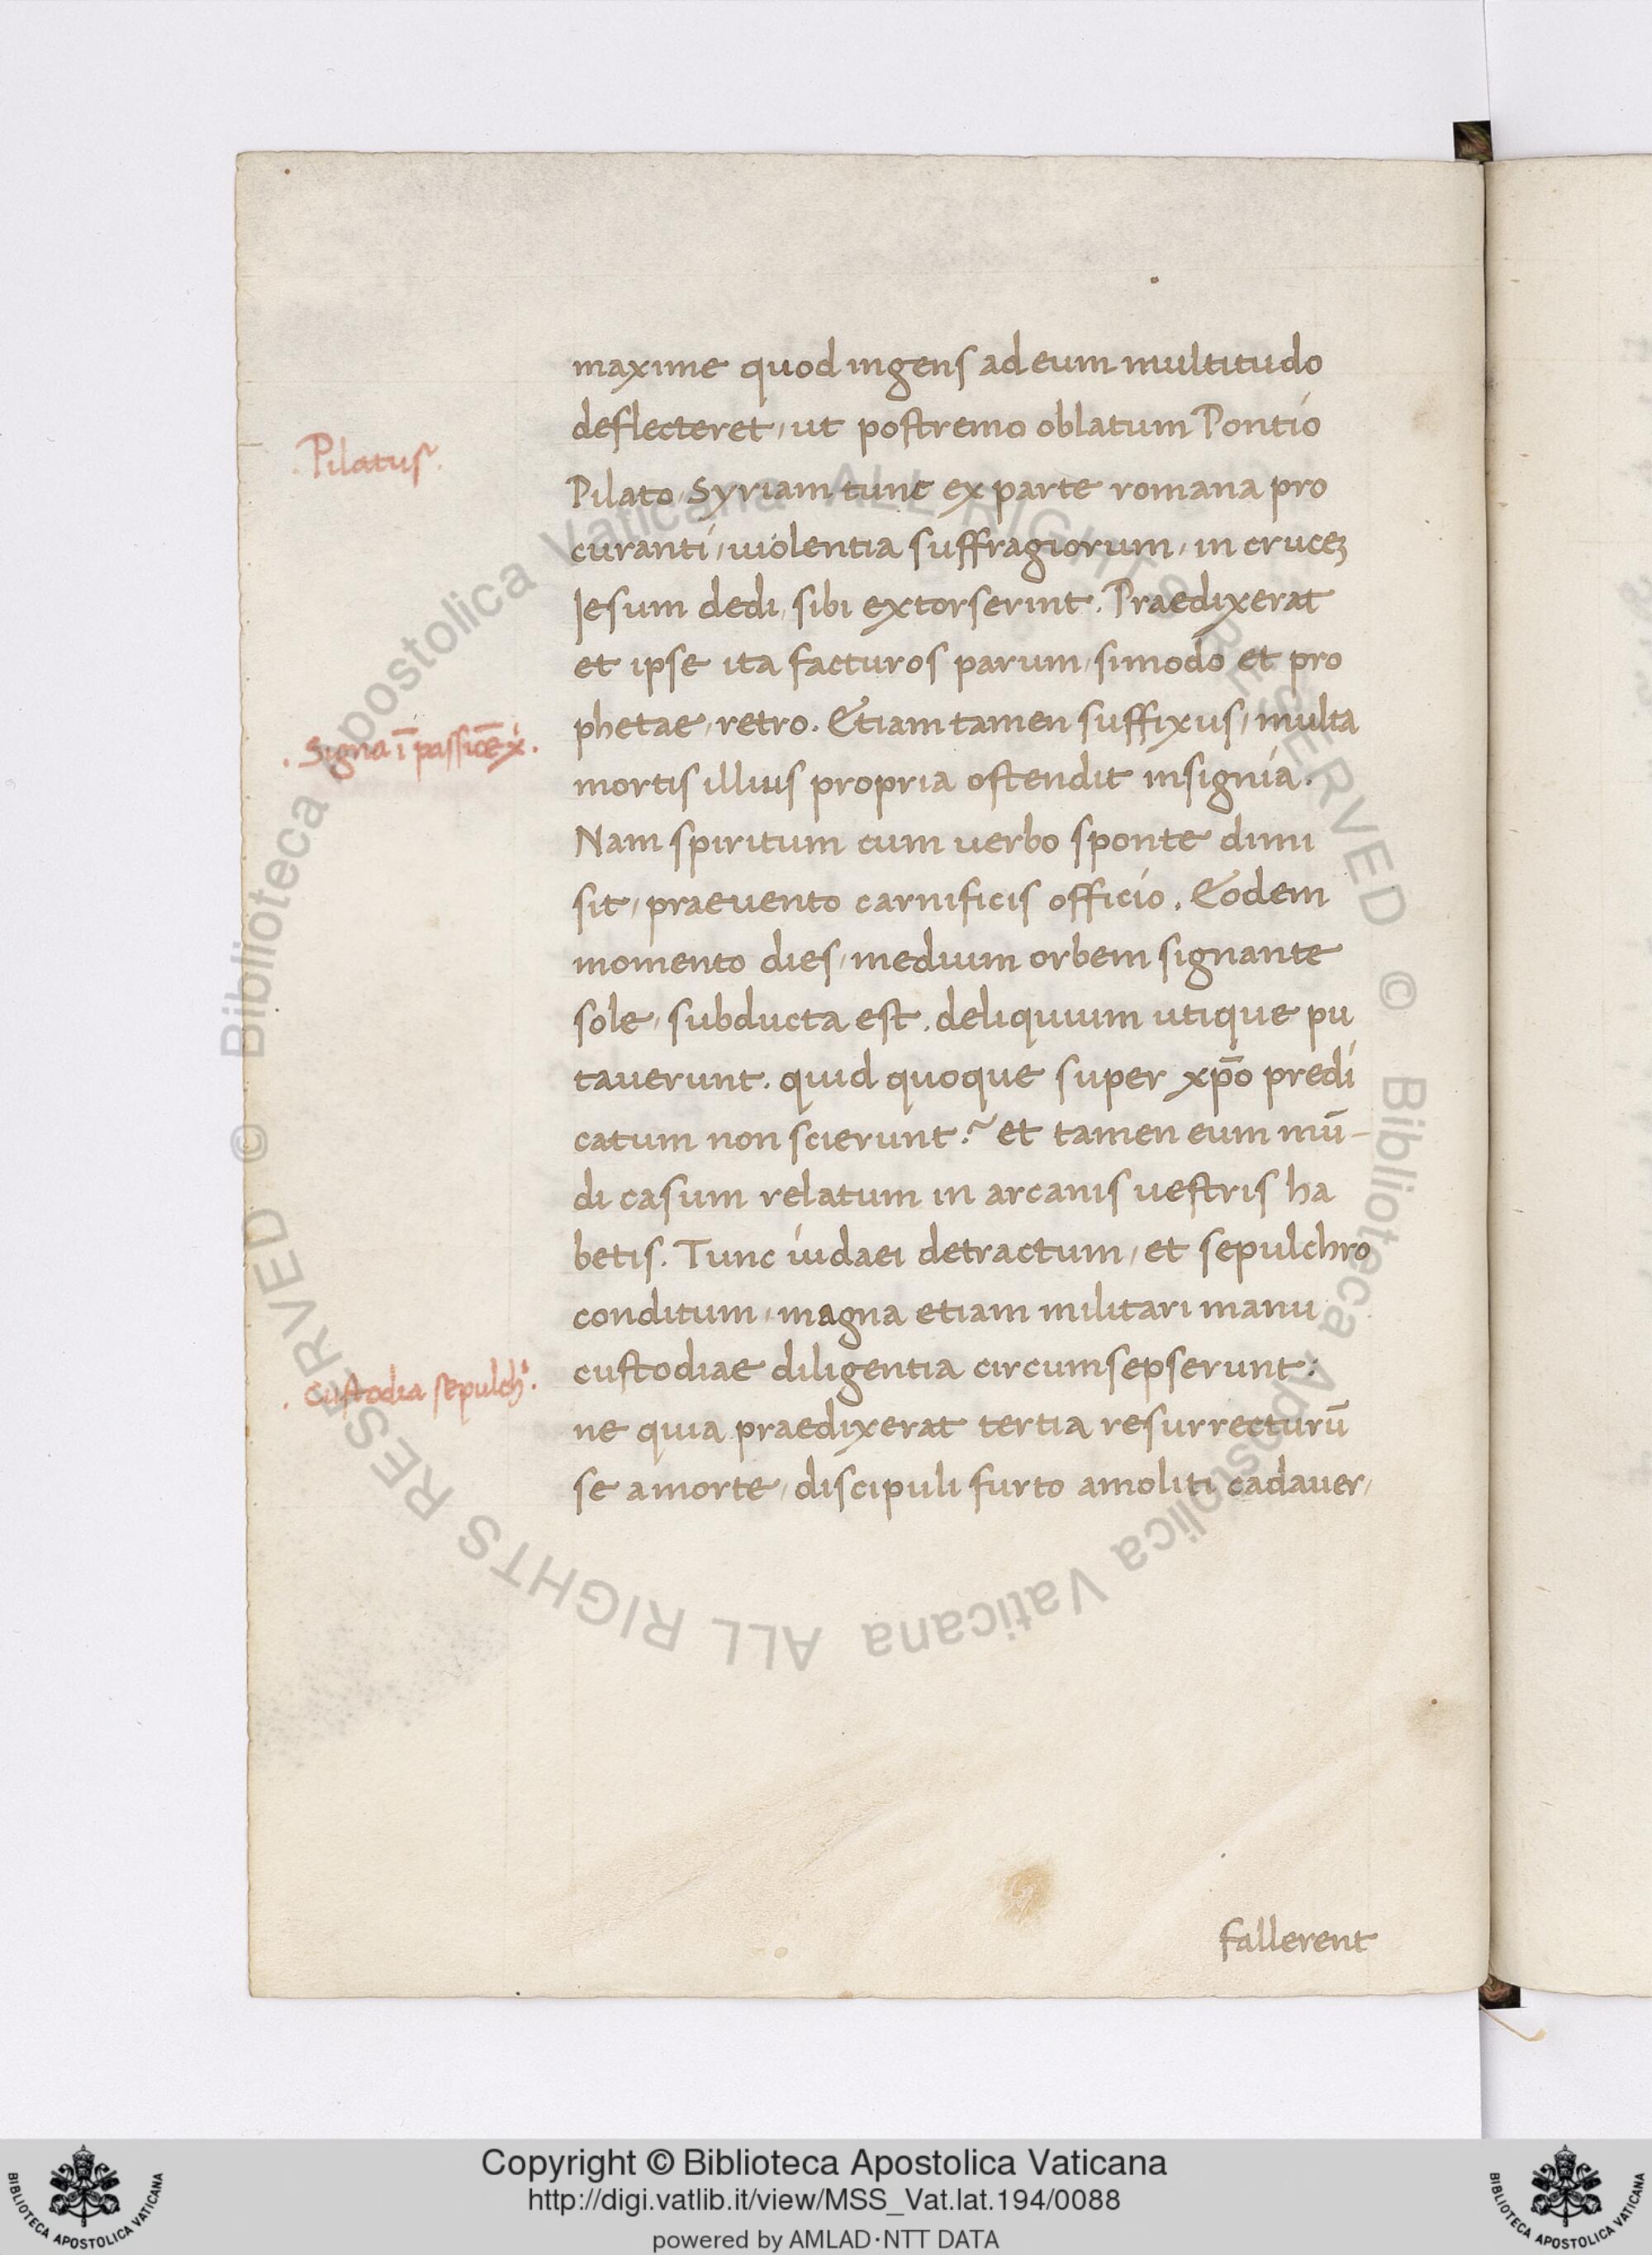 maxime quod ingens ad eum multitudo
deflecteret, ut postremo oblatum Pontio
.Pilatus.
Pilato, Syriam tunc ex parte romana pro
curanti, uiolentia suffragiorum, in cruceȝ
Iesum dedi, sibi extorserint. Praedixerat
et ipse ita facturos parum, simodo et pro
phetae, retro. Etiam tamen suffixus, multa
.Signa ī passiōe xⁱ.
mortis illius propria ostendit insignia.
Nam spiritum cum uerbo sponte dimi
sit, praeuento carnificis officio. Eodem
momento dies, medium orbem signante
sole, subducta est. deliquium utique pu
tauerunt. quid quoque super xp̄o predi
catum non scierunt? et tamen eum mū-
di casum relatum in arcanis uestris ha
betis. Tunc iudaei detractum, et sepulchro
conditum, magna etiam militari manu
custodiae diligentia circumsepserunt:
.Custodia sepulchⁱ.
ne quia praedixerat tertia resurrecturū
se amorte, discipuli furto amoliti cadauer,
fallerent
© Biblioteca Apostolica Vaticana ALL RIGHTS RESERVED © Biblioteca Apostolica Vaticana ALL RIGHTS RESERVED
Copyright © Biblioteca Apostolica Vaticana
http://digi.vatlib.it/view/MSS_Vat.lat.194/0088
powered by AMLAD·NTT DATA
BIBLIOTECA APOSTOLICA VATICANA
BIBLIOTECA APOSTOLICA VATICANA